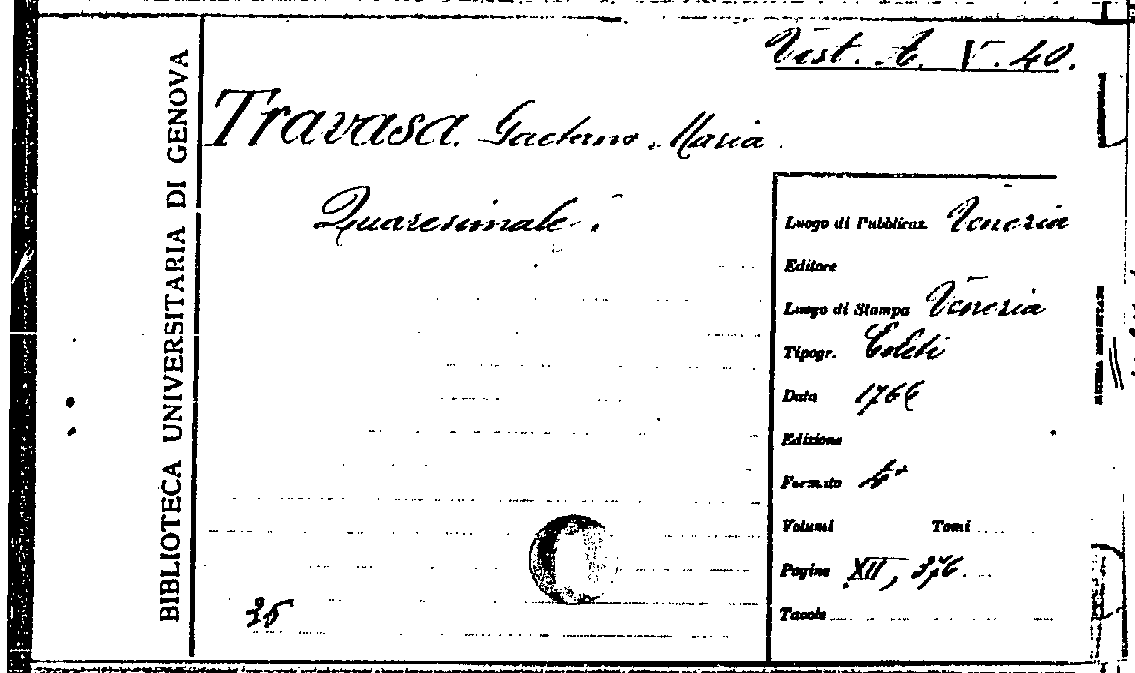 Vist. A. V. 40.
BIBLIOTECA UNIVERSITARIA DI GENOVA
Travasa Gaetano Maria
Quaresimale.
Luogo di Pubblicaz. Venezia
Editore
Luogo di Stampa Venezia
Tipogr. Coleti
Data 1766
Edizione
Formato 4°
Volumi Tomi
Pagine XII, 376.
Tavole
35